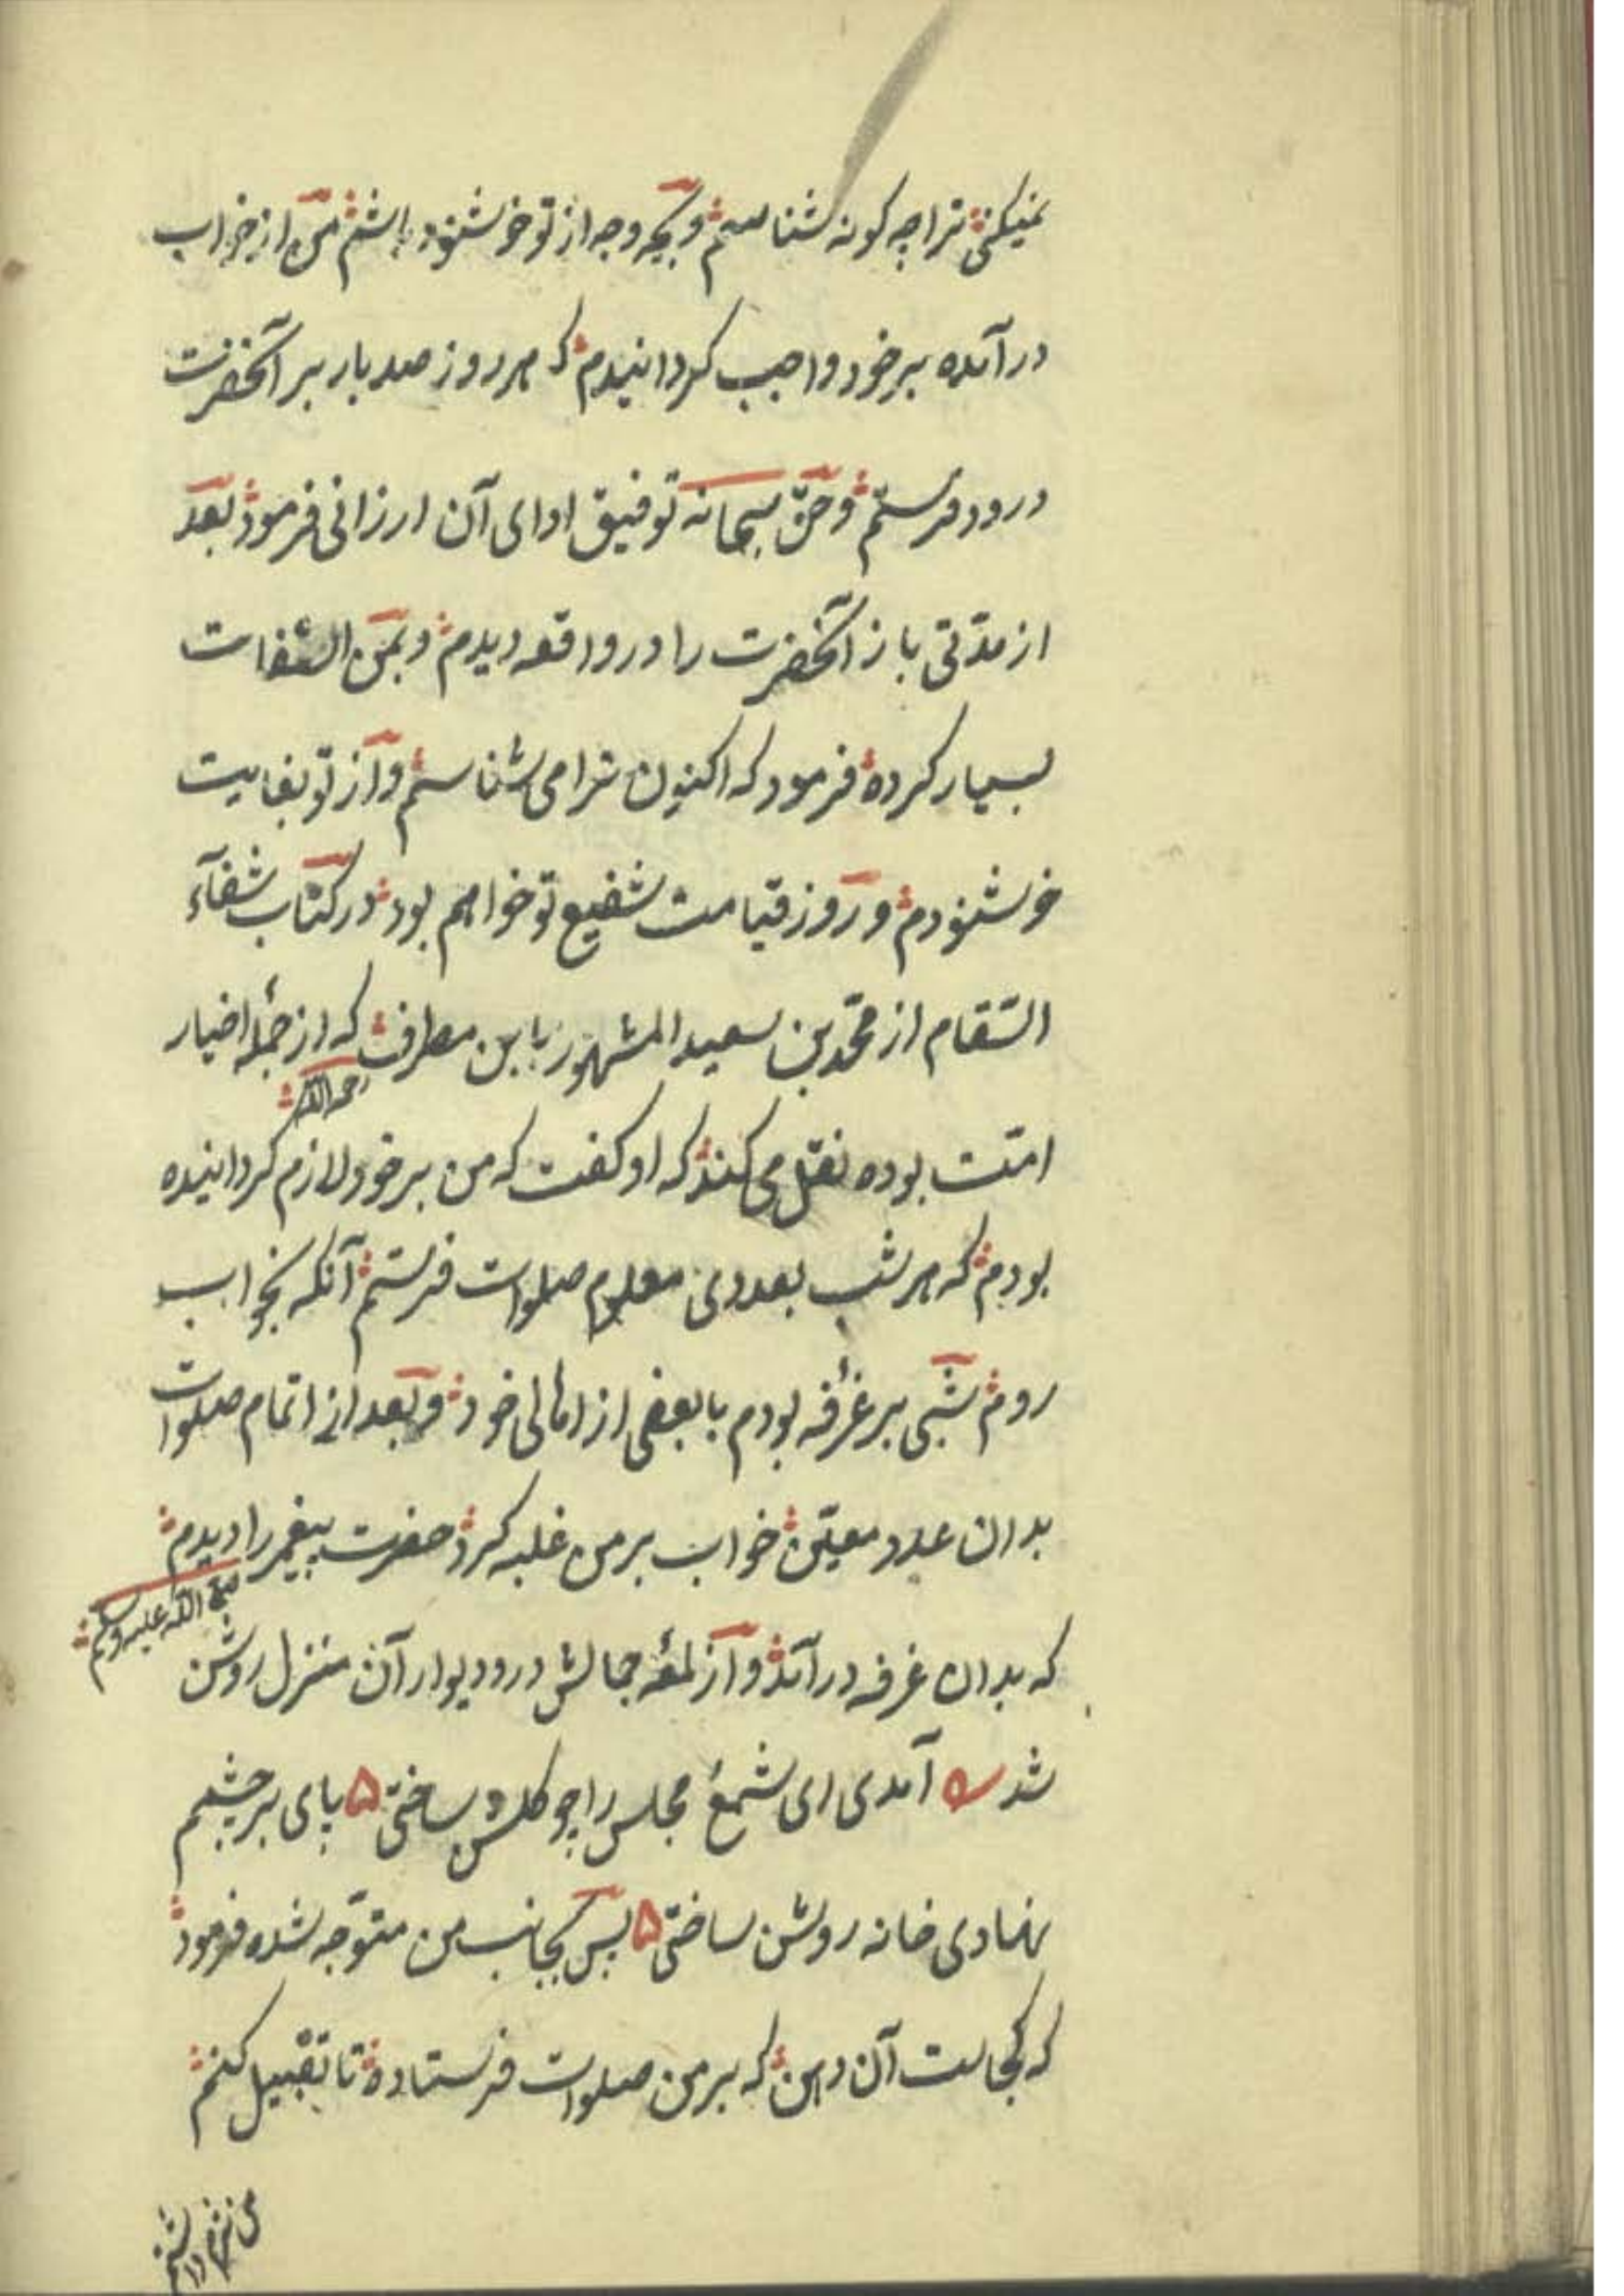 نمیکنی ترا چه کونه شناسم و بچه وجه از تو خوشنود باشم من از خواب
در آمده بر خود واجب کردانیدم که هر روز صد بار بر آنحضرت
درود فرستم و حق سبحانه توفیق ادای آن ارزانی فرمود بعد
از مدّتی باز آنحضرت را در واقعه دیدم و بمن التفات
بسیار کرده فرمود که اکنون ترا می شناسم و از تو بغایت
خوشنودم و روز قیامت شفیع تو خواهم بود در کتاب شفآء
السّقام از محمّد بن سعید المشهور بابن مطرف که از جملهٔ اخیار
رحمه الله
امّت بوده نقل می کند که او کفت که من بر خود لازم کردانیده
بودم که هر شب بعددی معلوم صلوات فرستم آنکه بخواب
روم شبی بر غرفه بودم با بعضی از اهالی خود و بعد از اتمام صلوات
بدان عدد معیّن خواب بر من غلبه کرد حضرت پیغمبر را دیدم
صلی الله علیه وسلم
که بدان غرفه در آمد و از لمعهٔ جمالش در و دیوار آن منزل روشن
شد آمدی ای شمع مجلس را چو کلشن ساختی ۵ پای بر چشمم
نهادی خانه روشن ساختی ۵ پس بجانب من متوّجه شده فرمود
که کجاست آن دهن که بر من صلوات فرستاده تا تقبیل کنم
من شرم داشتم